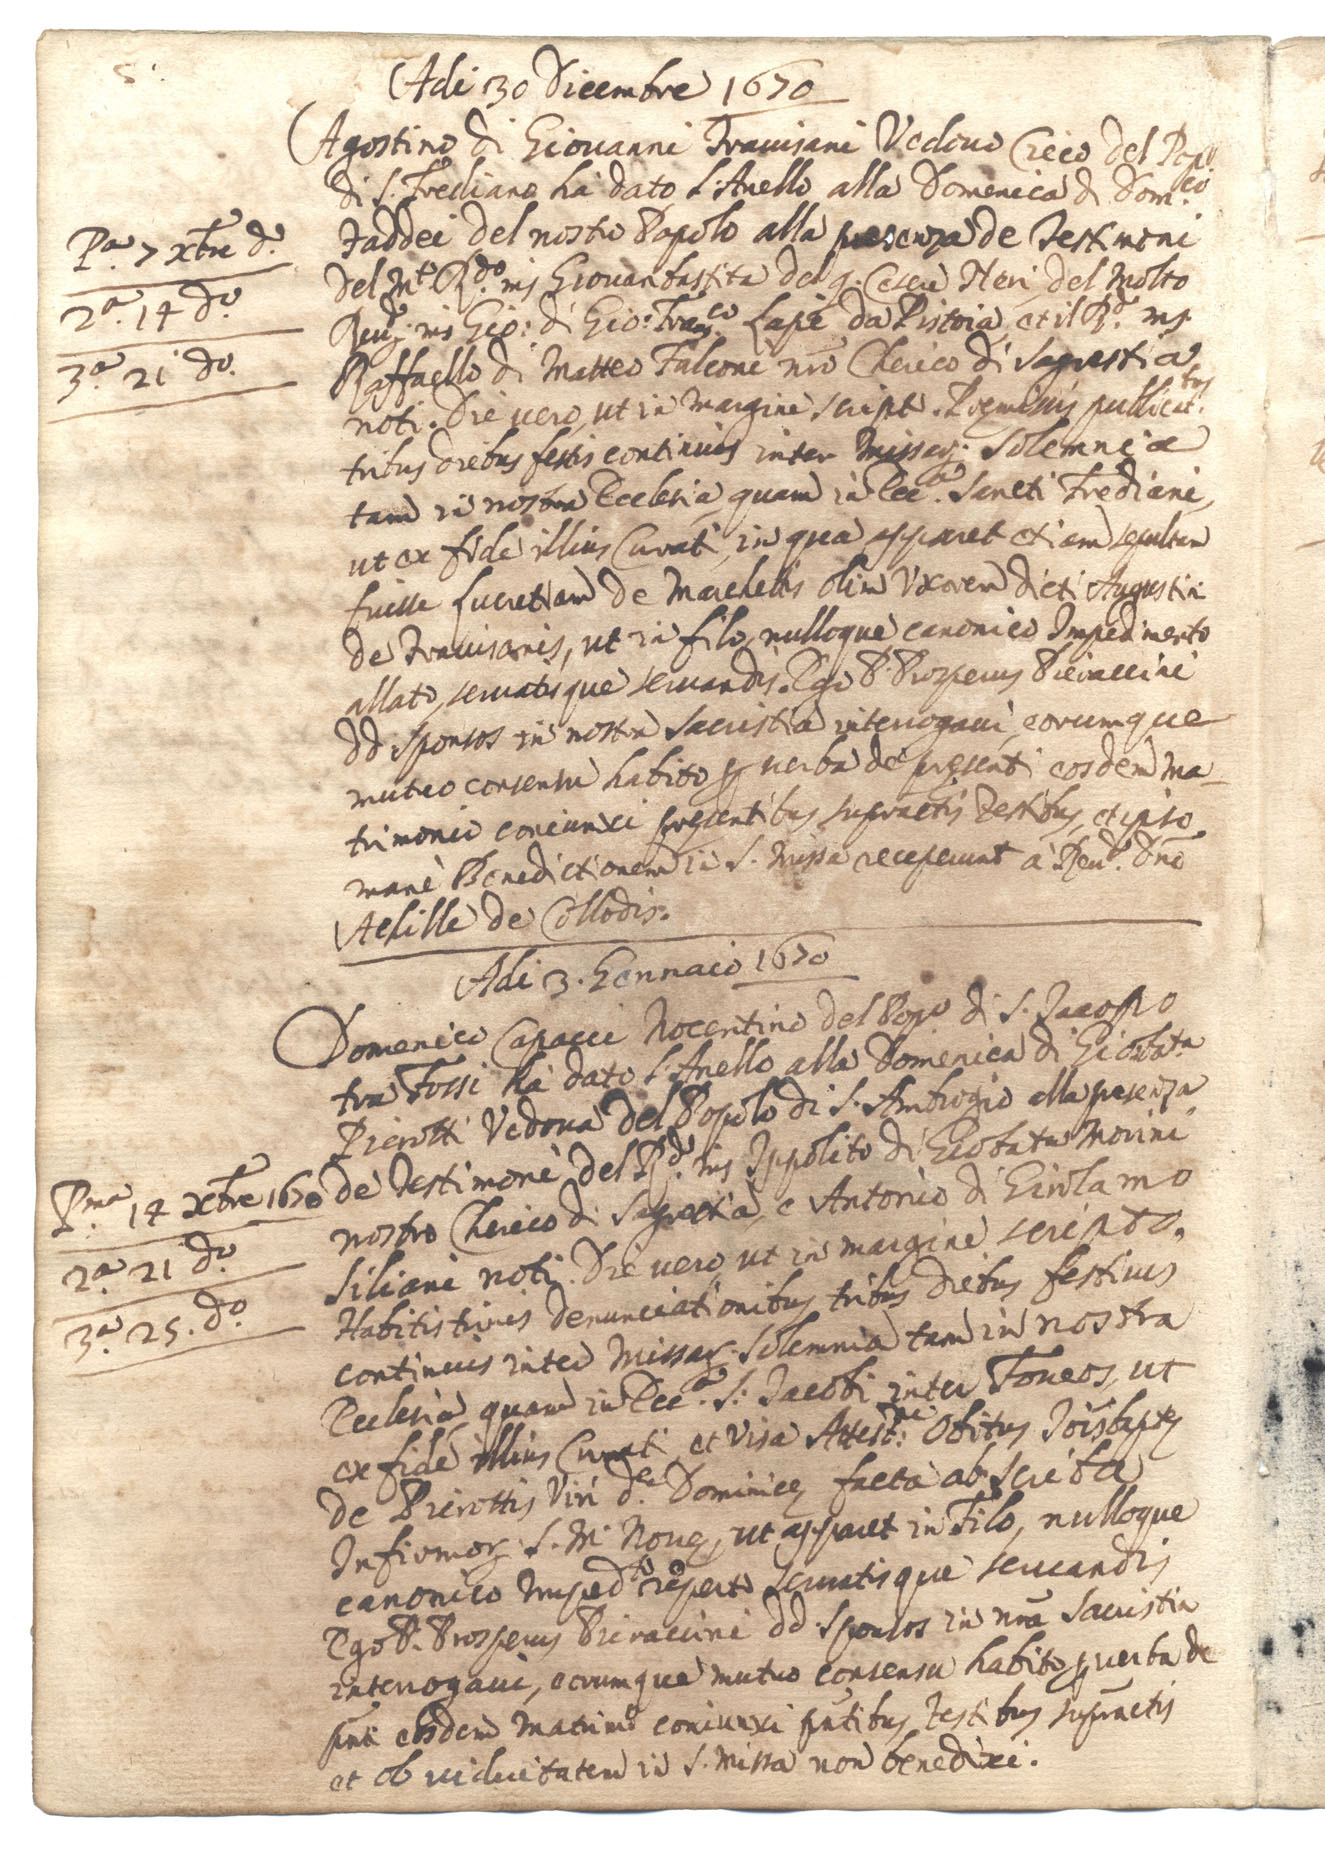 5.
Adi 30 Dicembre 1670
Agostino di Giovanni Travisani Vedovo Cieco del Popo
di S. Frediano hà dato l'Anello alla Domenica di Domco
Taddei del nostro Popolo alla presenza de Testimoni
Pa. 7 xbre do
del Mto Rdo ms Giovanbattista del q. Neri, del Molto
2a. 14 do
Revdo ms Gio: di Gio: Franco Lapi da Pistoia, et il Rdo ms
3a. 21 do.
Raffaello di Matteo Falconi nro Cherico di Sagrestia
noti. Die vero, ut in margine script. Premissis pullicatbus
tribus diebus festis continuis inter Missarum Solemnia
tam in nostra Ecclesia, quam in Ecca. Sancti Frediani,
ut ex fide illius Curati, in qua apparet etiam sepultam
fuisse Lucretiam de Marchettis olim Uxorem dicti Augustini
de Travisanis, ut in filo, nulloque canonico Impedimento
allato, servatisque servandis. Ego P. Prosperus Pieraccini
dd. Sponsos in nostra Sacristia interrogavi, eorumque
mutuo consensu habito p verba de presenti eosdem ma-
trimonio coniunxi presentibus supractis Testibus, et ipso
manè Benedictionem in S. Missa receperunt à Revdo. Dno
Achille de Collodis.
Adi 3. Gennaio 1670
Domenico Capacci Nocentino del Popo di S. Jacopo
tra Fossi hà dato l'Anello alla Domenica di Giobata
Pierotti Vedova del Popolo di S. Ambrogio alla presenza
Pma. 14 xbre 1670
de Testimoni del Rdo ms Ippolito di Giobata Morini
nostro Cherico di Sagrestia, e Antonio di Girolamo
2a. 21 do.
Siliani noti. Die vero, ut in margine scripto.
3a. 25. do.
Habitis trinis denunciationibus tribus diebus festivis
continuis inter Missarum Solemnia tam in nostra
Ecclesia, quam in Ecca. S. Jacobi inter Foveos, ut
ex fide illius Curati, et visa Attestne Obitus Jois bapte
de Pierottis Viri de Dominice facta ab Scriba
Infirmor. S. M. Nove, ut apparet in Filo, nulloque
canonico Impedto reperto servatisque servandis
Ego P. Prosperus Pieraccini dd. Sponsos in nra Sacristia
interrogavi, eorumque mutuo consensu habito p verba de
pnti eosdem Matrimo coniunxi pntibus Testibus supractis
et ob viduitatem in S. Missa non benedixi.